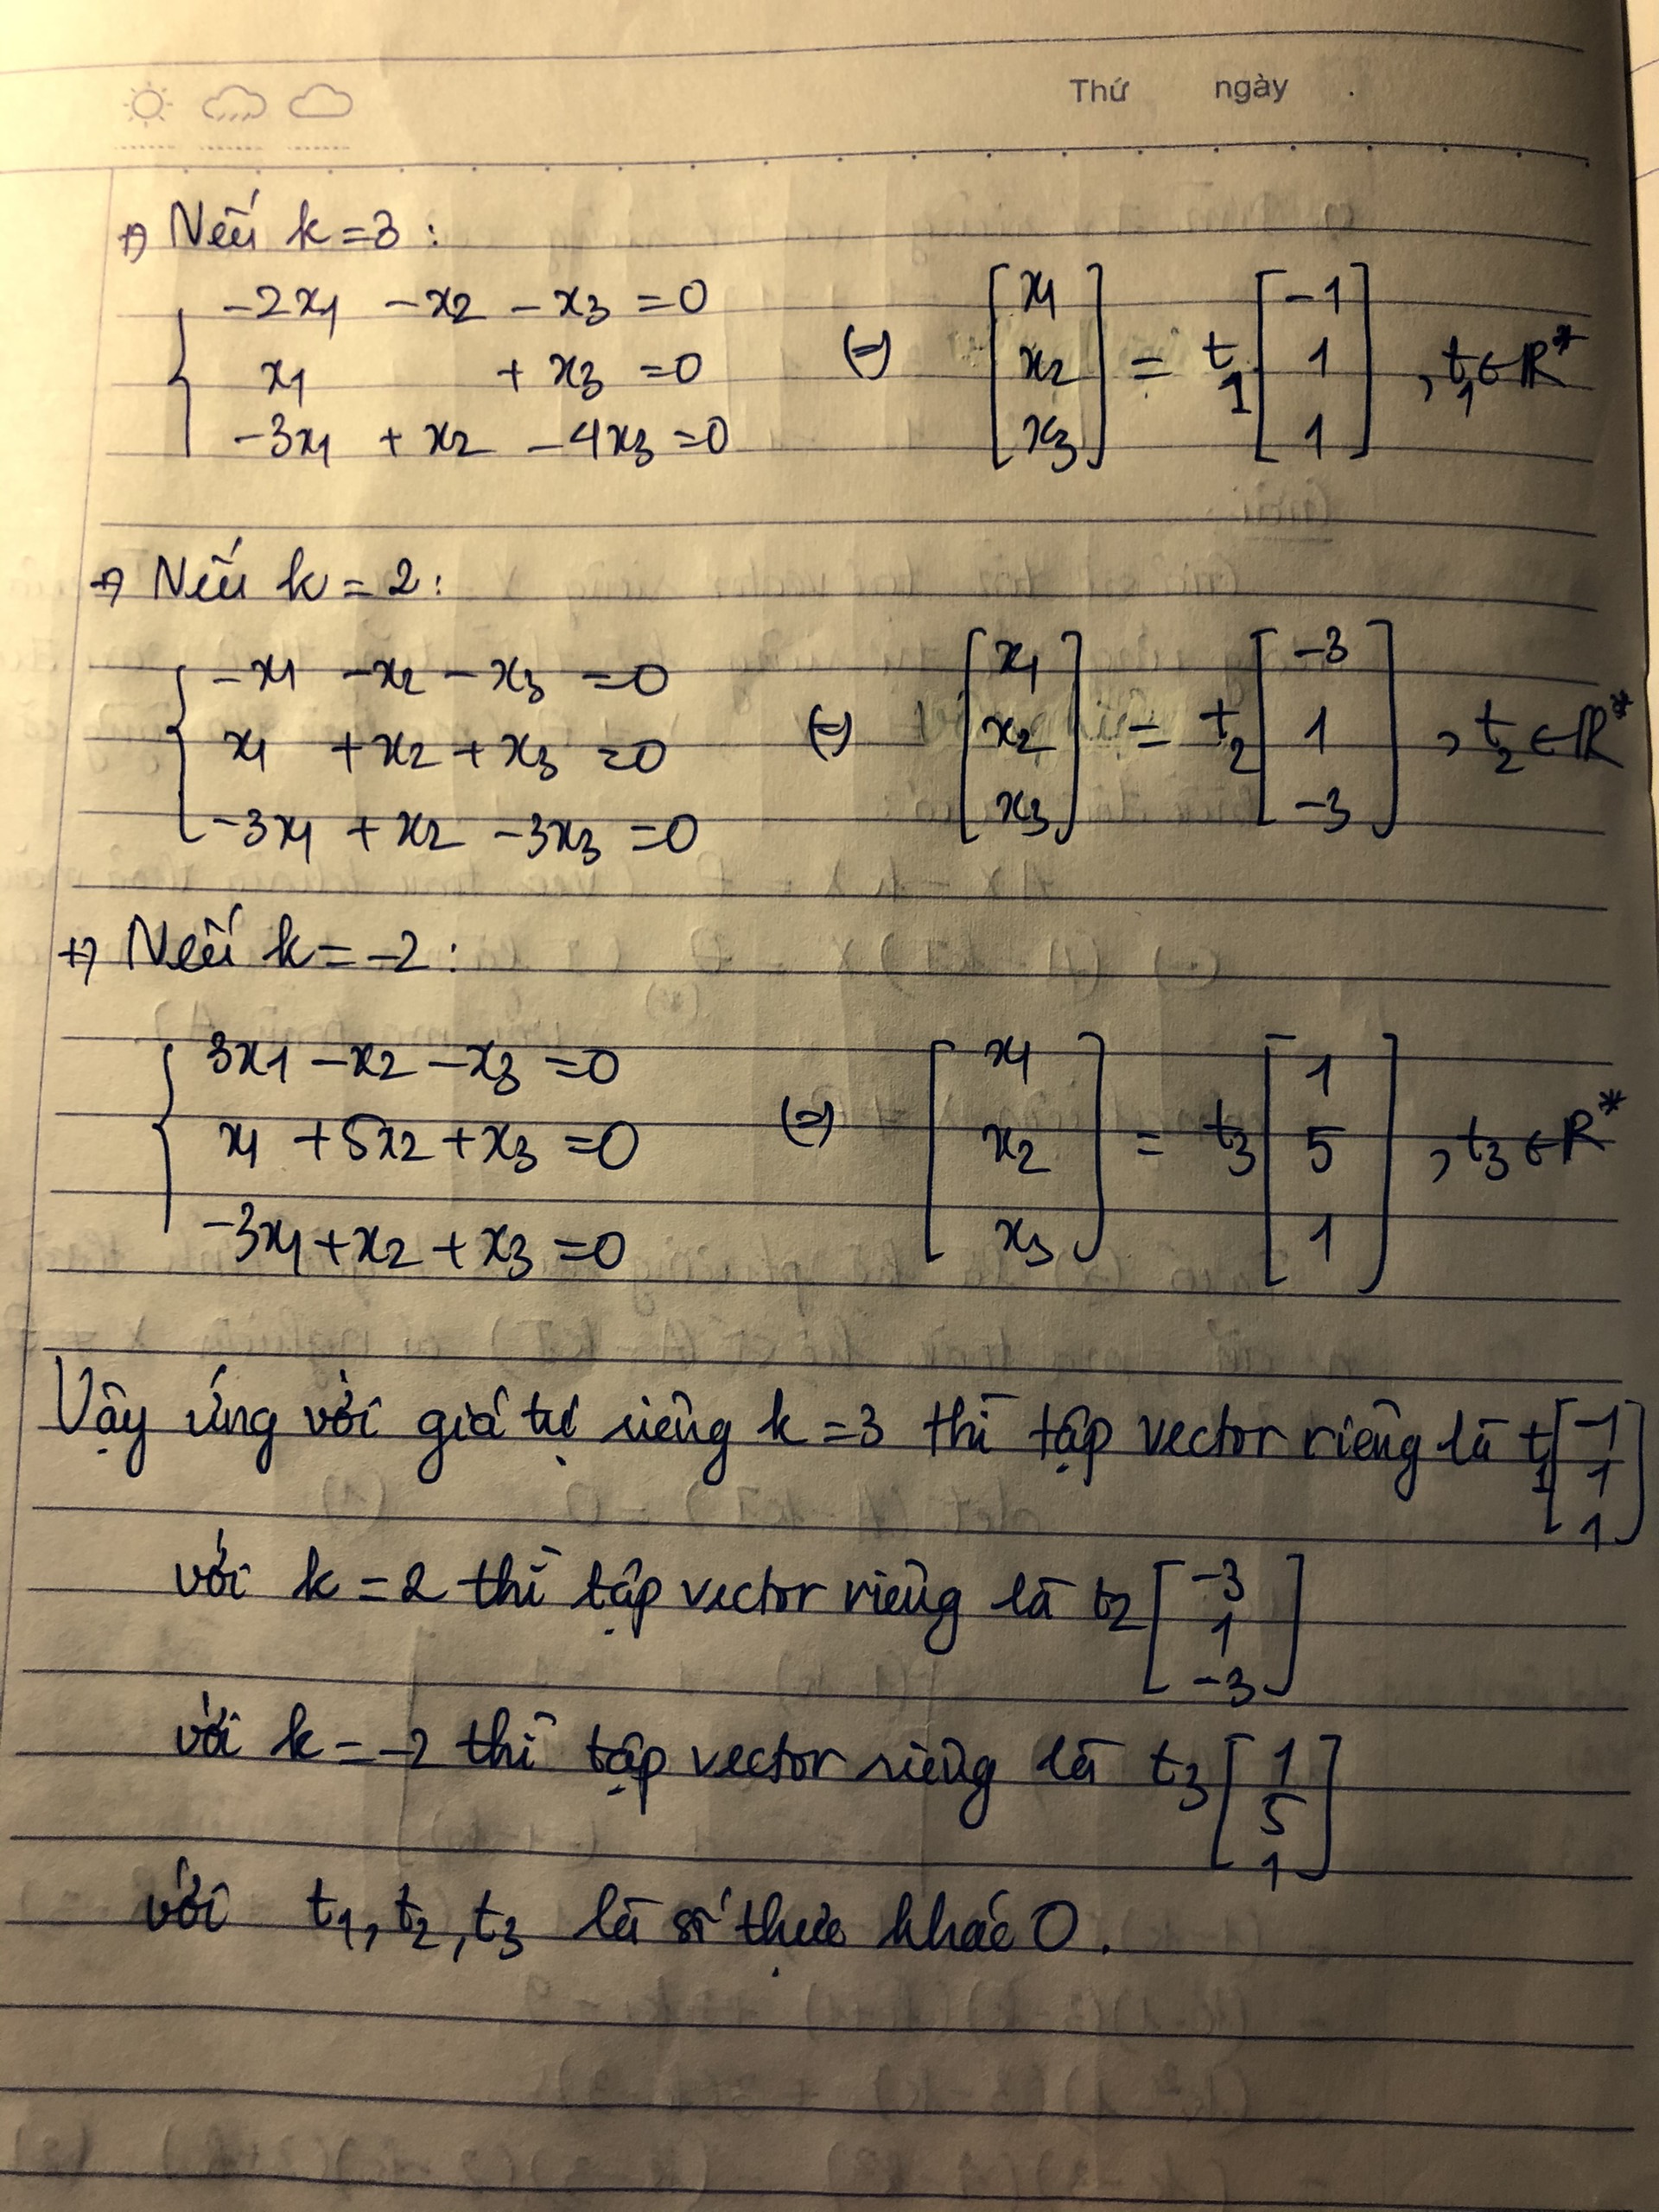 Thứ ngày .
+) Nếu k = 3 :
-2x₁ - x₂ - x₃ = 0
x₁ + x₃ = 0
-3x₁ + x₂ - 4x₃ = 0
(=) [x₁ x₂ x₃] = t₁ [-1 1 1] , t₁ ∈ ℝ*
+) Nếu k = 2 :
-x₁ - x₂ - x₃ = 0
x₁ + x₂ + x₃ = 0
-3x₁ + x₂ - 3x₃ = 0
(=) [x₁ x₂ x₃] = t₂ [-3 1 -3] , t₂ ∈ ℝ*
+) Nếu k = -2 :
3x₁ - x₂ - x₃ = 0
x₁ + 5x₂ + x₃ = 0
-3x₁ + x₂ + x₃ = 0
(=) [x₁ x₂ x₃] = t₃ [1 5 1] , t₃ ∈ ℝ*
Vậy ứng với giá trị riêng k = 3 thì tập vector riêng là t₁ [-1 1 1]
với k = 2 thì tập vector riêng là t₂ [-3 1 -3]
với k = -2 thì tập vector riêng là t₃ [1 5 1]
với t₁, t₂, t₃ là số thực khác 0.